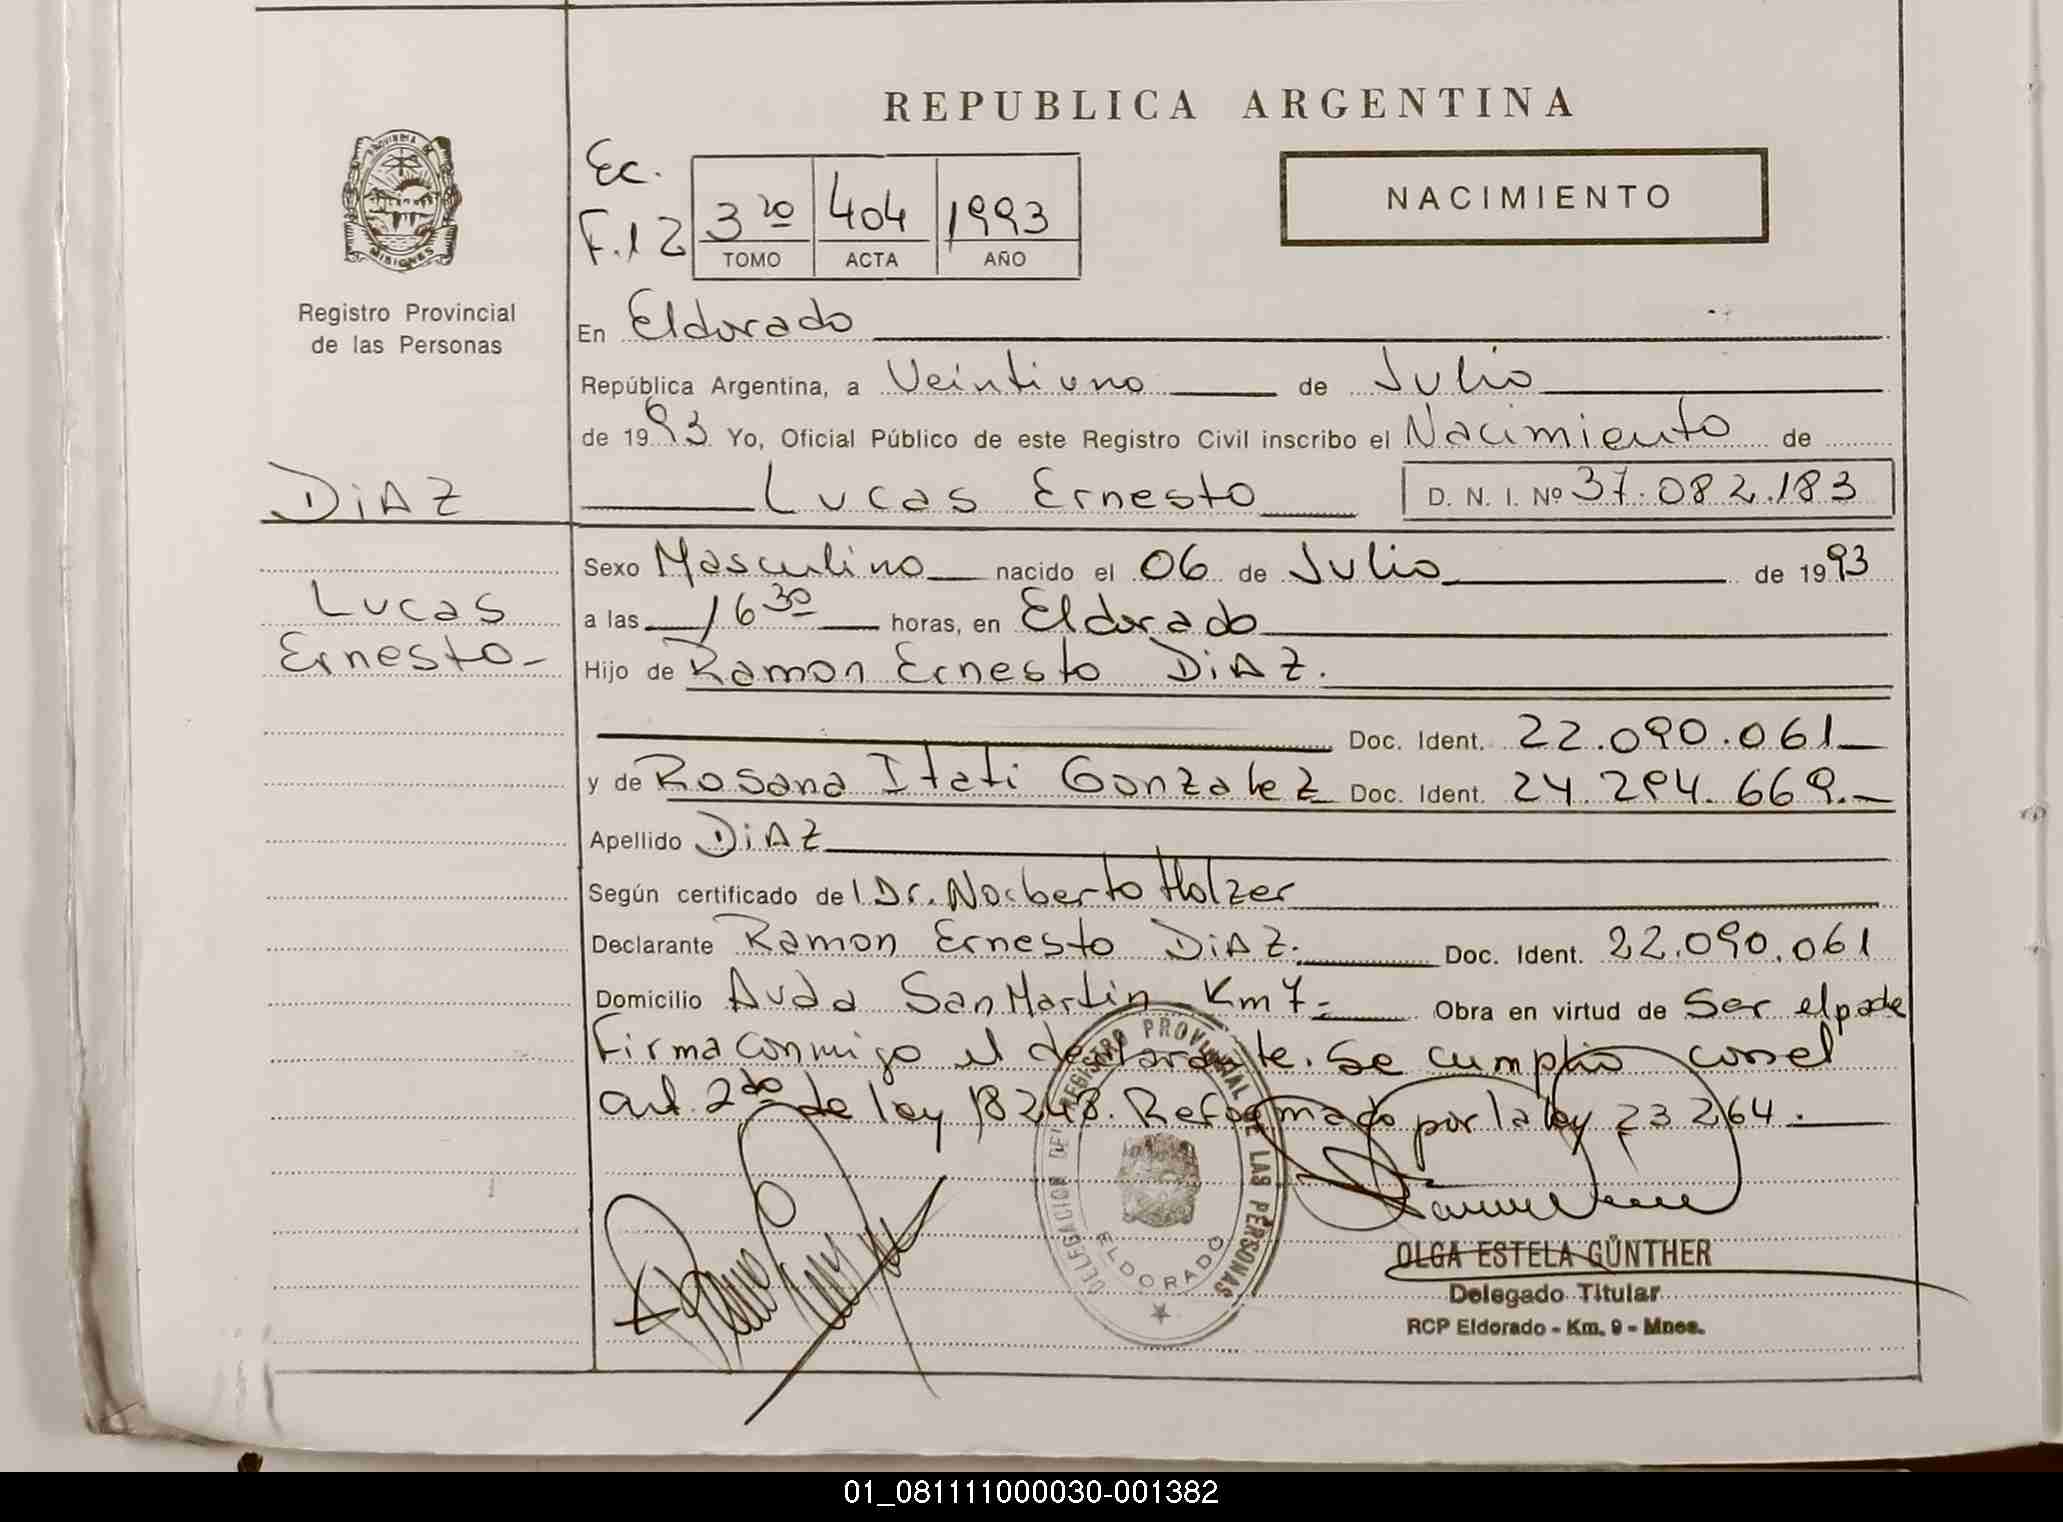 REPUBLICA ARGENTINA
PROVINCIA DE
MISIONES
Registro Provincial
de las Personas
Ec.
F.12
3 ro 404 1993
TOMO ACTA AÑO
NACIMIENTO
En Eldorado
República Argentina, a Veintiuno de Julio
de 1993 Yo, Oficial Público de este Registro Civil inscribo el Nacimiento de
DiAZ
Lucas Ernesto D. N. I. Nº 37.082.183
Sexo Masculino nacido el 06 de Julio de 1993
Lucas
a las 16 30 horas, en Eldorado
Ernesto-
Hijo de Ramon Ernesto DiAZ.
Doc. Ident. 22.090.061
y de Rosana Itati Gonzalez Doc. Ident. 24.294.669.-
Apellido DiAZ
Según certificado del Dr. Norberto Holzer
Declarante Ramon Ernesto DiAZ. Doc. Ident. 22.090.061
Domicilio Avda San Martin Km 7- Obra en virtud de Ser el padre
Firma conmigo el declarante. Se cumplio con el
art. 2do de ley 18248. Reformado por la ley 23264.
DELEGACION DEL REGISTRO PROVINCIAL DE LAS PERSONAS
ELDORADO
OLGA ESTELA GÜNTHER
Delegado Titular
RCP Eldorado - Km. 9 - Mnes.
01_081111000030-001382